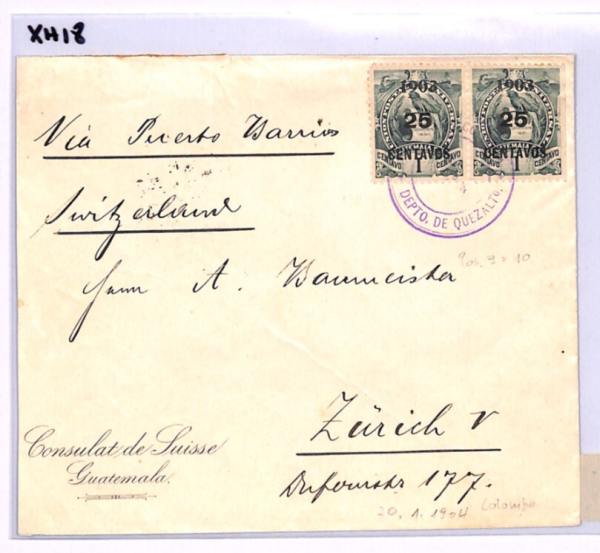 XH18
1903 1903
25 25
GUATEMALA GUATEMALA
CENTAVOS CENTAVOS
CENTAVO 1 CENTAVO CENTAVO 1 CENTAVO
DEPTO. DE QUEZALTO.
Via Puerto Barrios
Switzerland
Herrn A. Baumeister
Pos. 9 + 10
Zürich V
Dufourstr 177.
Consulat de Suisse
Guatemala.
20. 1. 1904 Colomba